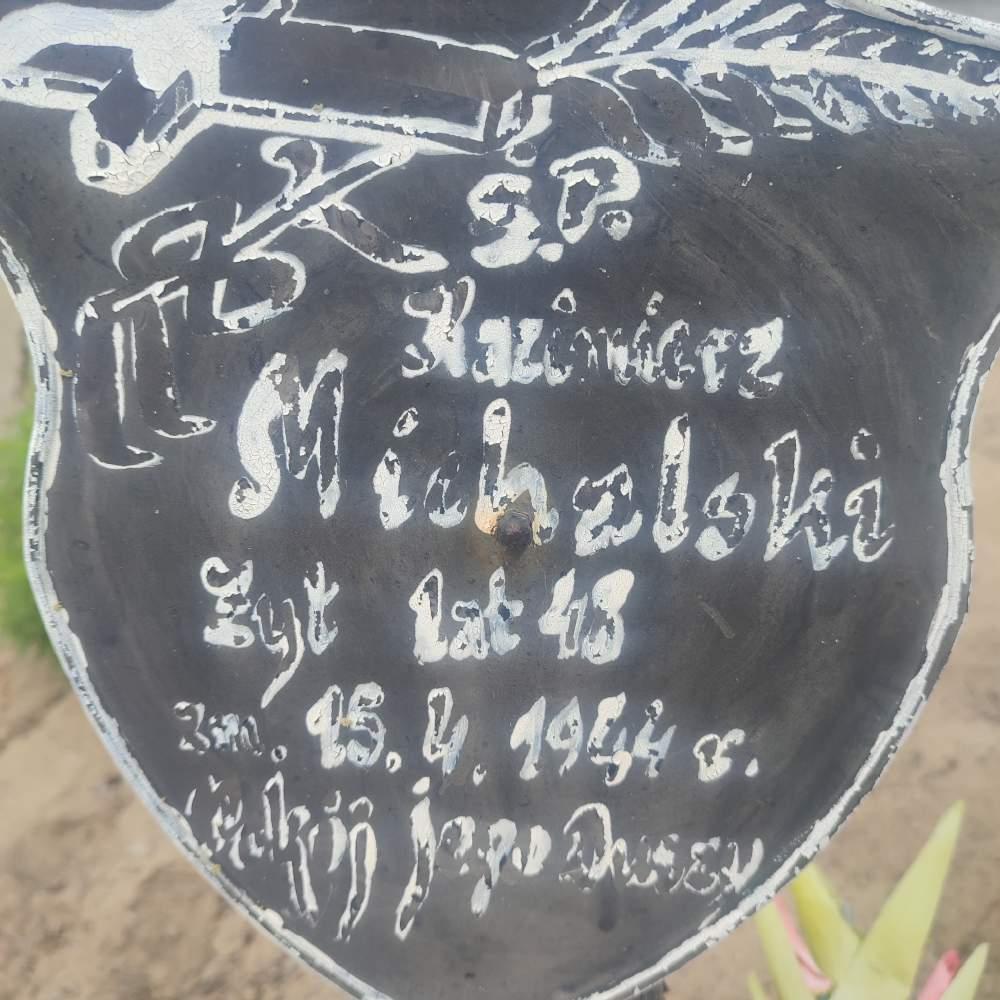 Ś.P.
Kazimierz
Michalski
Żył lat 48
zm. 15.4.1944 r.
jego Duszy